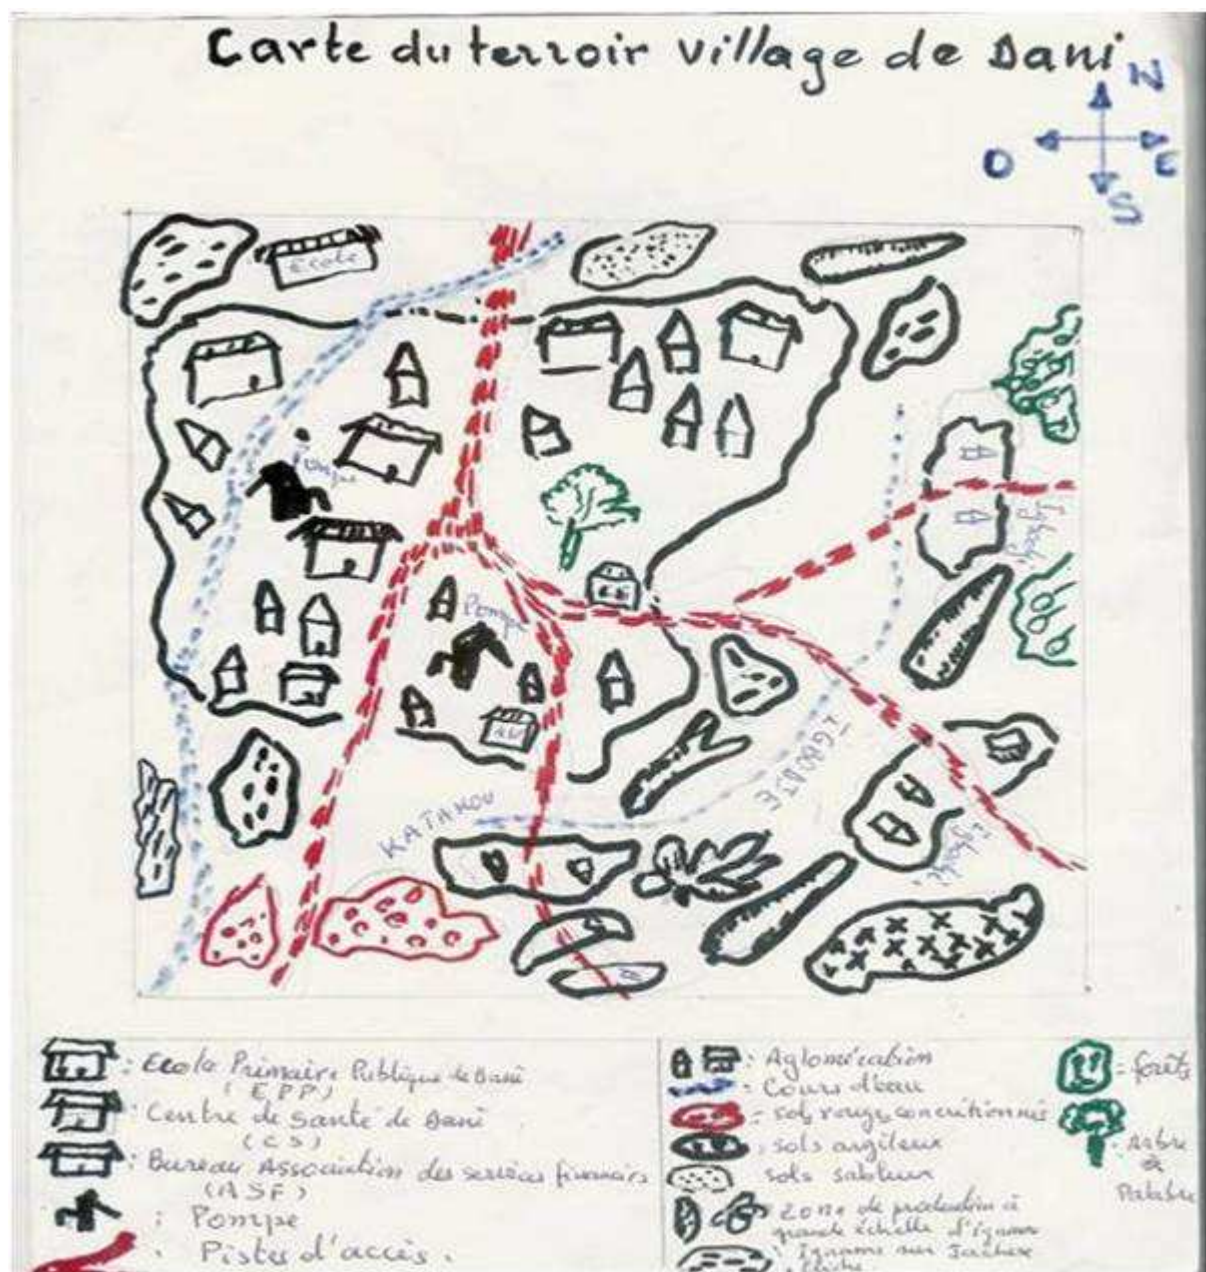 Carte du terroir village de Dani
N
O
E
S
Ecole
Pompe
KATAKOU
IGBODJE
: Ecole Primaire Publique de Dani
(EPP)
: Centre de Santé de Dani
(CS)
: Bureau Association des services financiers
(ASF)
: Pompe
: Pistes d'accès.
: Aglomération
: Cours d'eau
: sols rouge concrétionnés
: sols argileux
sols sableux
: Zone de production à
grande échelle d'igname
: Igname sur Jachère
: forêts
: Arbre
à
Palabre